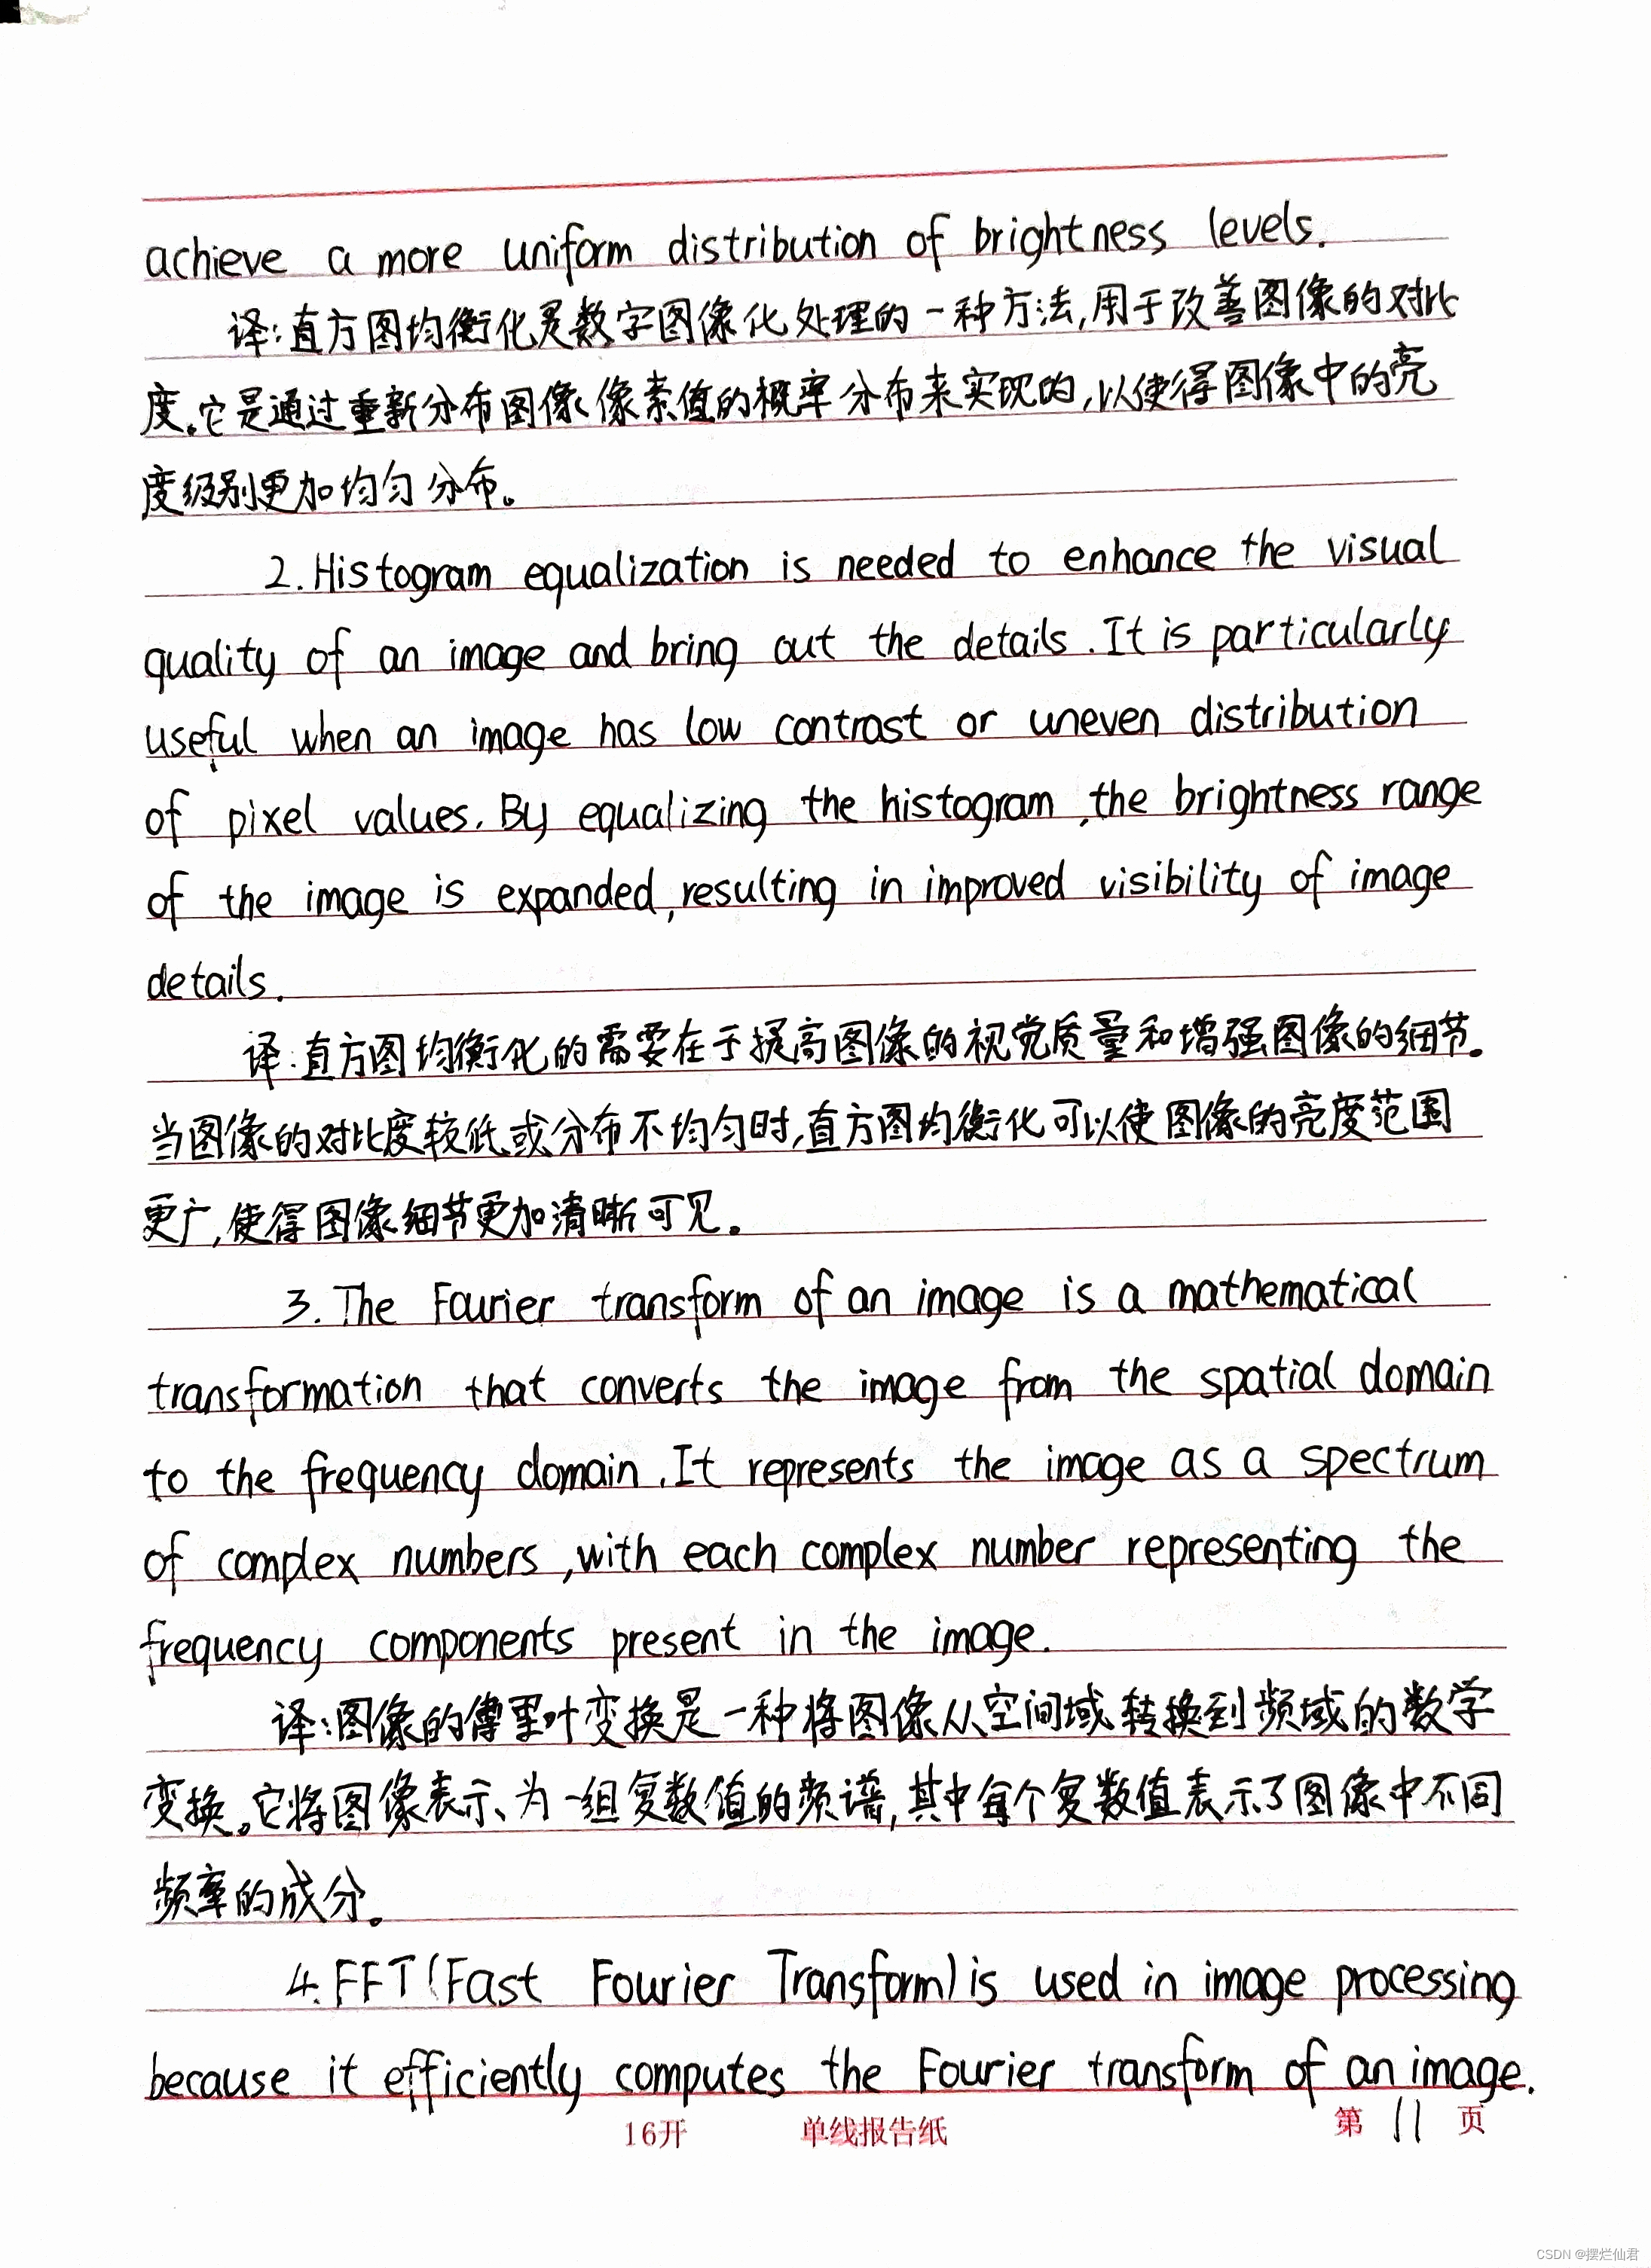 achieve a more uniform distribution of brightness levels.
译:直方图均衡化是数字图像化处理的一种方法,用于改善图像的对比
度。它是通过重新分布图像像素值的概率分布来实现的,以使得图像中的亮
度级别更加均匀分布。
2. Histogram equalization is needed to enhance the visual
quality of an image and bring out the details. It is particularly
useful when an image has low contrast or uneven distribution
of pixel values. By equalizing the histogram, the brightness range
of the image is expanded, resulting in improved visibility of image
details.
译:直方图均衡化的需要在于提高图像的视觉质量和增强图像的细节。
当图像的对比度较低或分布不均匀时,直方图均衡化可以使图像的亮度范围
更广,使得图像细节更加清晰可见。
3. The Fourier transform of an image is a mathematical
transformation that converts the image from the spatial domain
to the frequency domain. It represents the image as a spectrum
of complex numbers, with each complex number representing the
frequency components present in the image.
译:图像的傅里叶变换是一种将图像从空间域转换到频域的数学
变换。它将图像表示为一组复数值的频谱,其中每个复数值表示了图像中不同
频率的成分。
4. FFT (Fast Fourier Transform) is used in image processing
because it efficiently computes the Fourier transform of an image.
16开 单线报告纸 第 11 页
CSDN @摆烂仙君